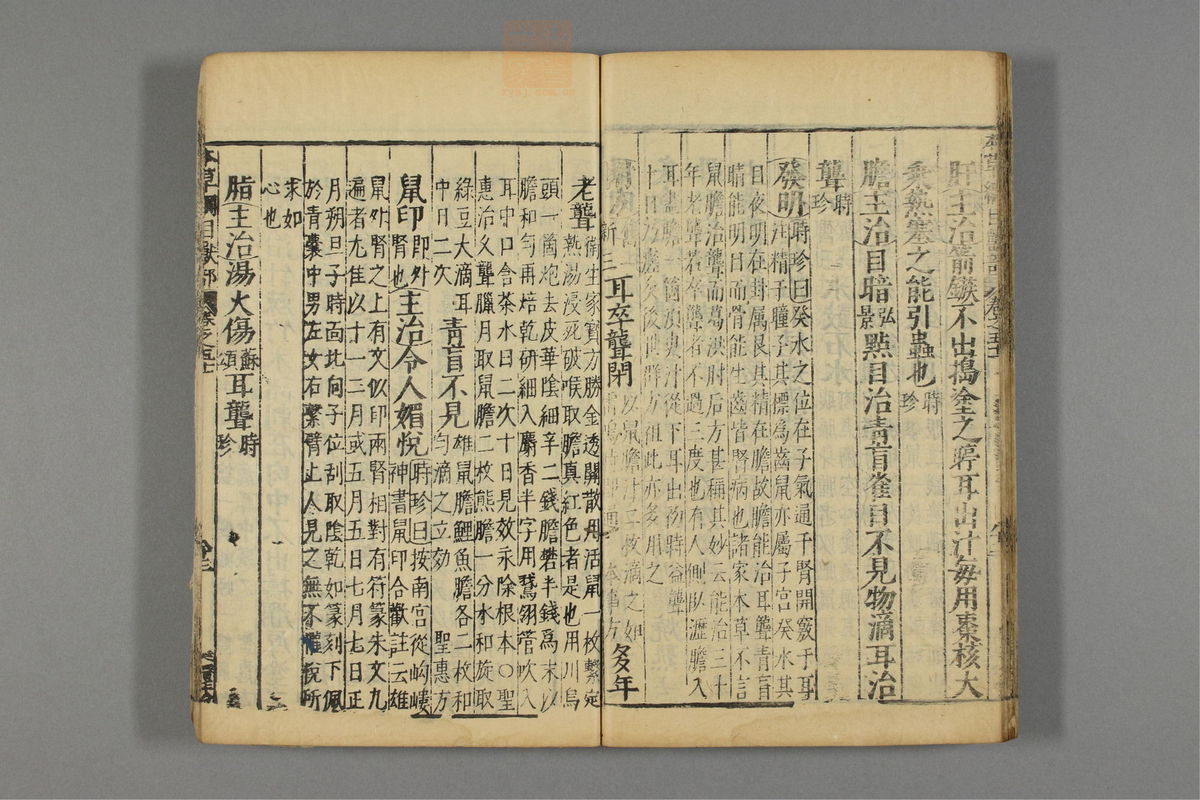 肝主治箭鏃不出搗塗之聤耳出汁每用棗核大
乘熱塞之能引蟲也時珍
膽主治目暗弘景點目治青盲雀目不見物滴耳治
聾時珍
發明時珍曰癸水之位在子氣通于腎開竅于耳
注精于瞳子其標為齒鼠亦屬子宮癸水其
目夜明在卦屬艮其精在膽故膽能治耳聾青盲
睛能明目而骨能生齒皆腎病也諸家本草不言
鼠膽治聾而葛洪肘后方甚稱其妙云能治三十
年老聾若卒聾者不過三度也有人側臥瀝膽入
耳盡膽一箇須臾汁從下耳出初時益聾
十日乃瘥矣後世群方祖此亦多用之
附方 新三 耳卒聾閉 以鼠膽汁二枚滴之如
雷鳴時即通 本事方 多年
老聾衛生家寶方勝金透關散用活鼠一枚繫定
熱湯浸死破喉取膽真紅色者是也用川烏
頭一箇炮去皮華陰細辛二錢膽礬半錢為末以
膽和勻再焙乾研細入麝香半字用鵞翎管吹入
耳中口含茶水日二次十日見效永除根本○聖
惠治久聾臘月取鼠膽二枚熊膽一分水和旋取
綠豆大滴耳 青盲不見 雄鼠膽鯉魚膽各二枚和
中日二次 勻滴之立効 聖惠方
鼠印即外腎也主治令人媚悅時珍曰按南宮從岣嶁
神書鼠印合歡註云雄
鼠外腎之上有文似印兩腎相對有符篆朱文九
遍者尤佳以十一二月或五月五日七月七日正
月朔旦子時面北向子位刮取陰乾如篆刻下佩
於青囊中男左女右繫臂上人見之無不懽悅所
求如
心也
脂主治湯火傷蘇頌耳聾時珍
本草綱目獸部 卷之五十一